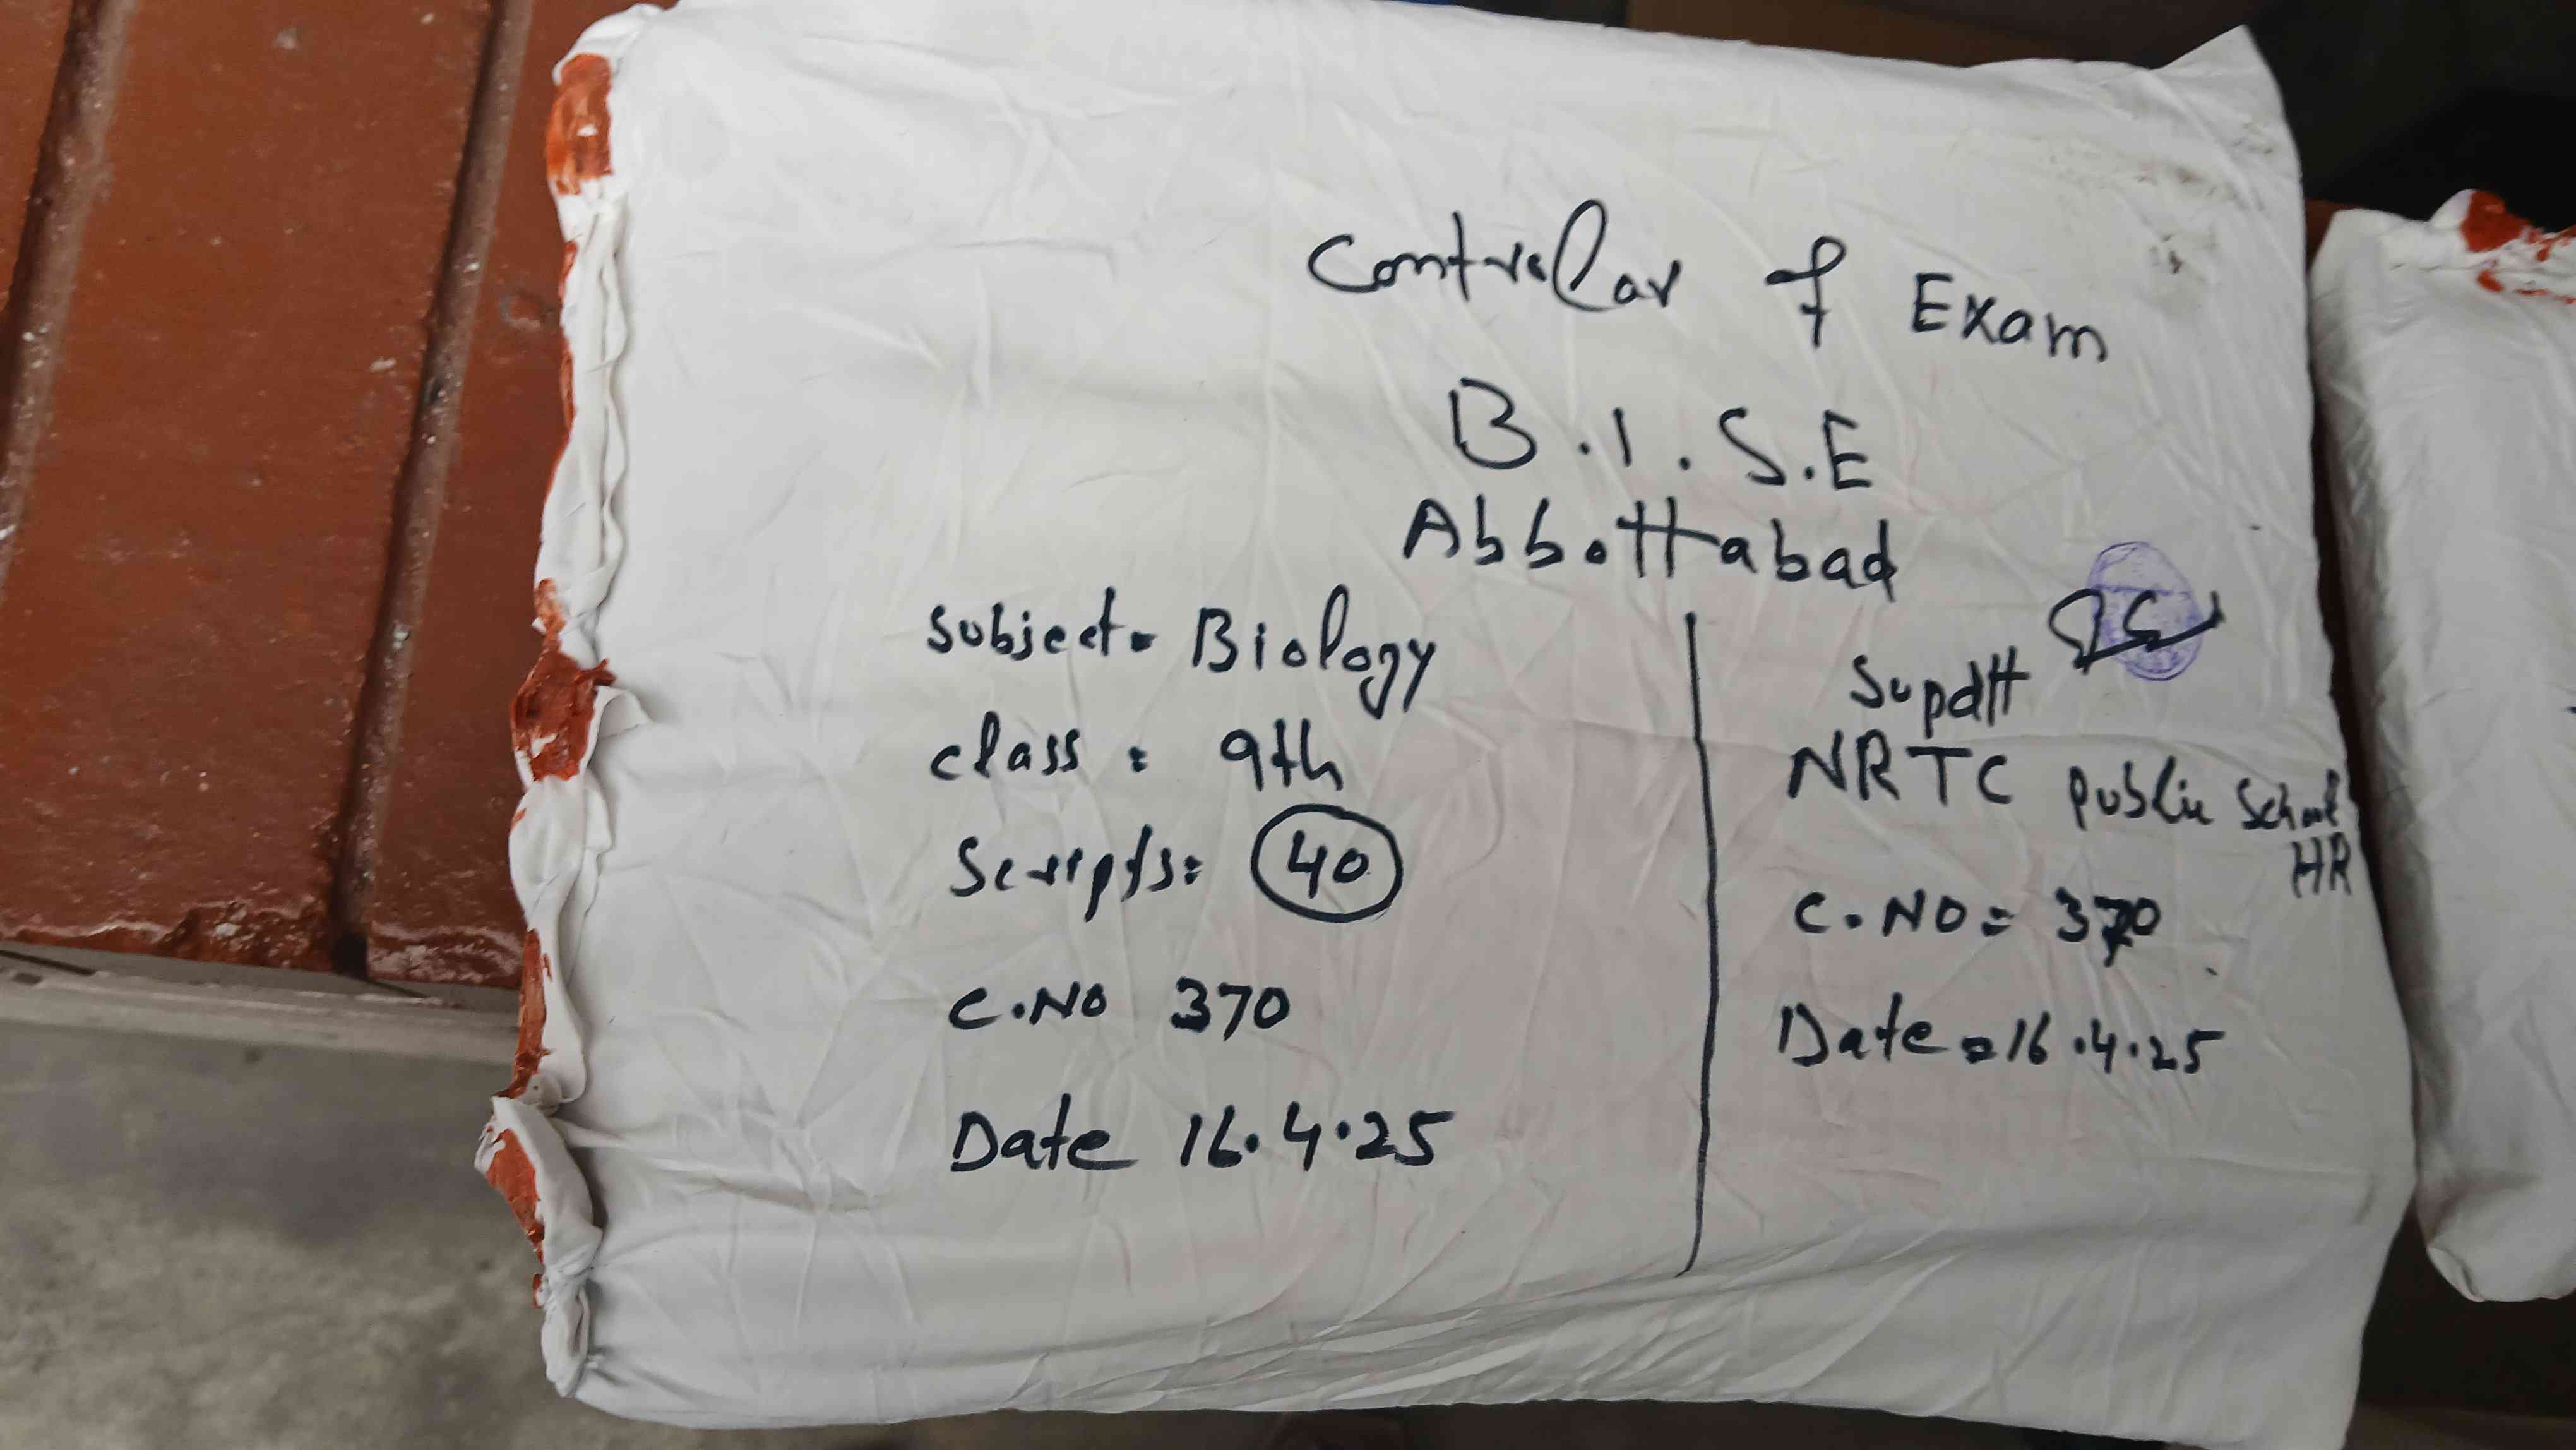 Controlar of Exam
B.I.S.E
Abbottabad
Subject= Biology
class : 9th
Scripts: 40
C.NO 370
Date 16.4.25
Supdtt
NRTC Public School
HR
C.NO = 370
Date = 16.4.25